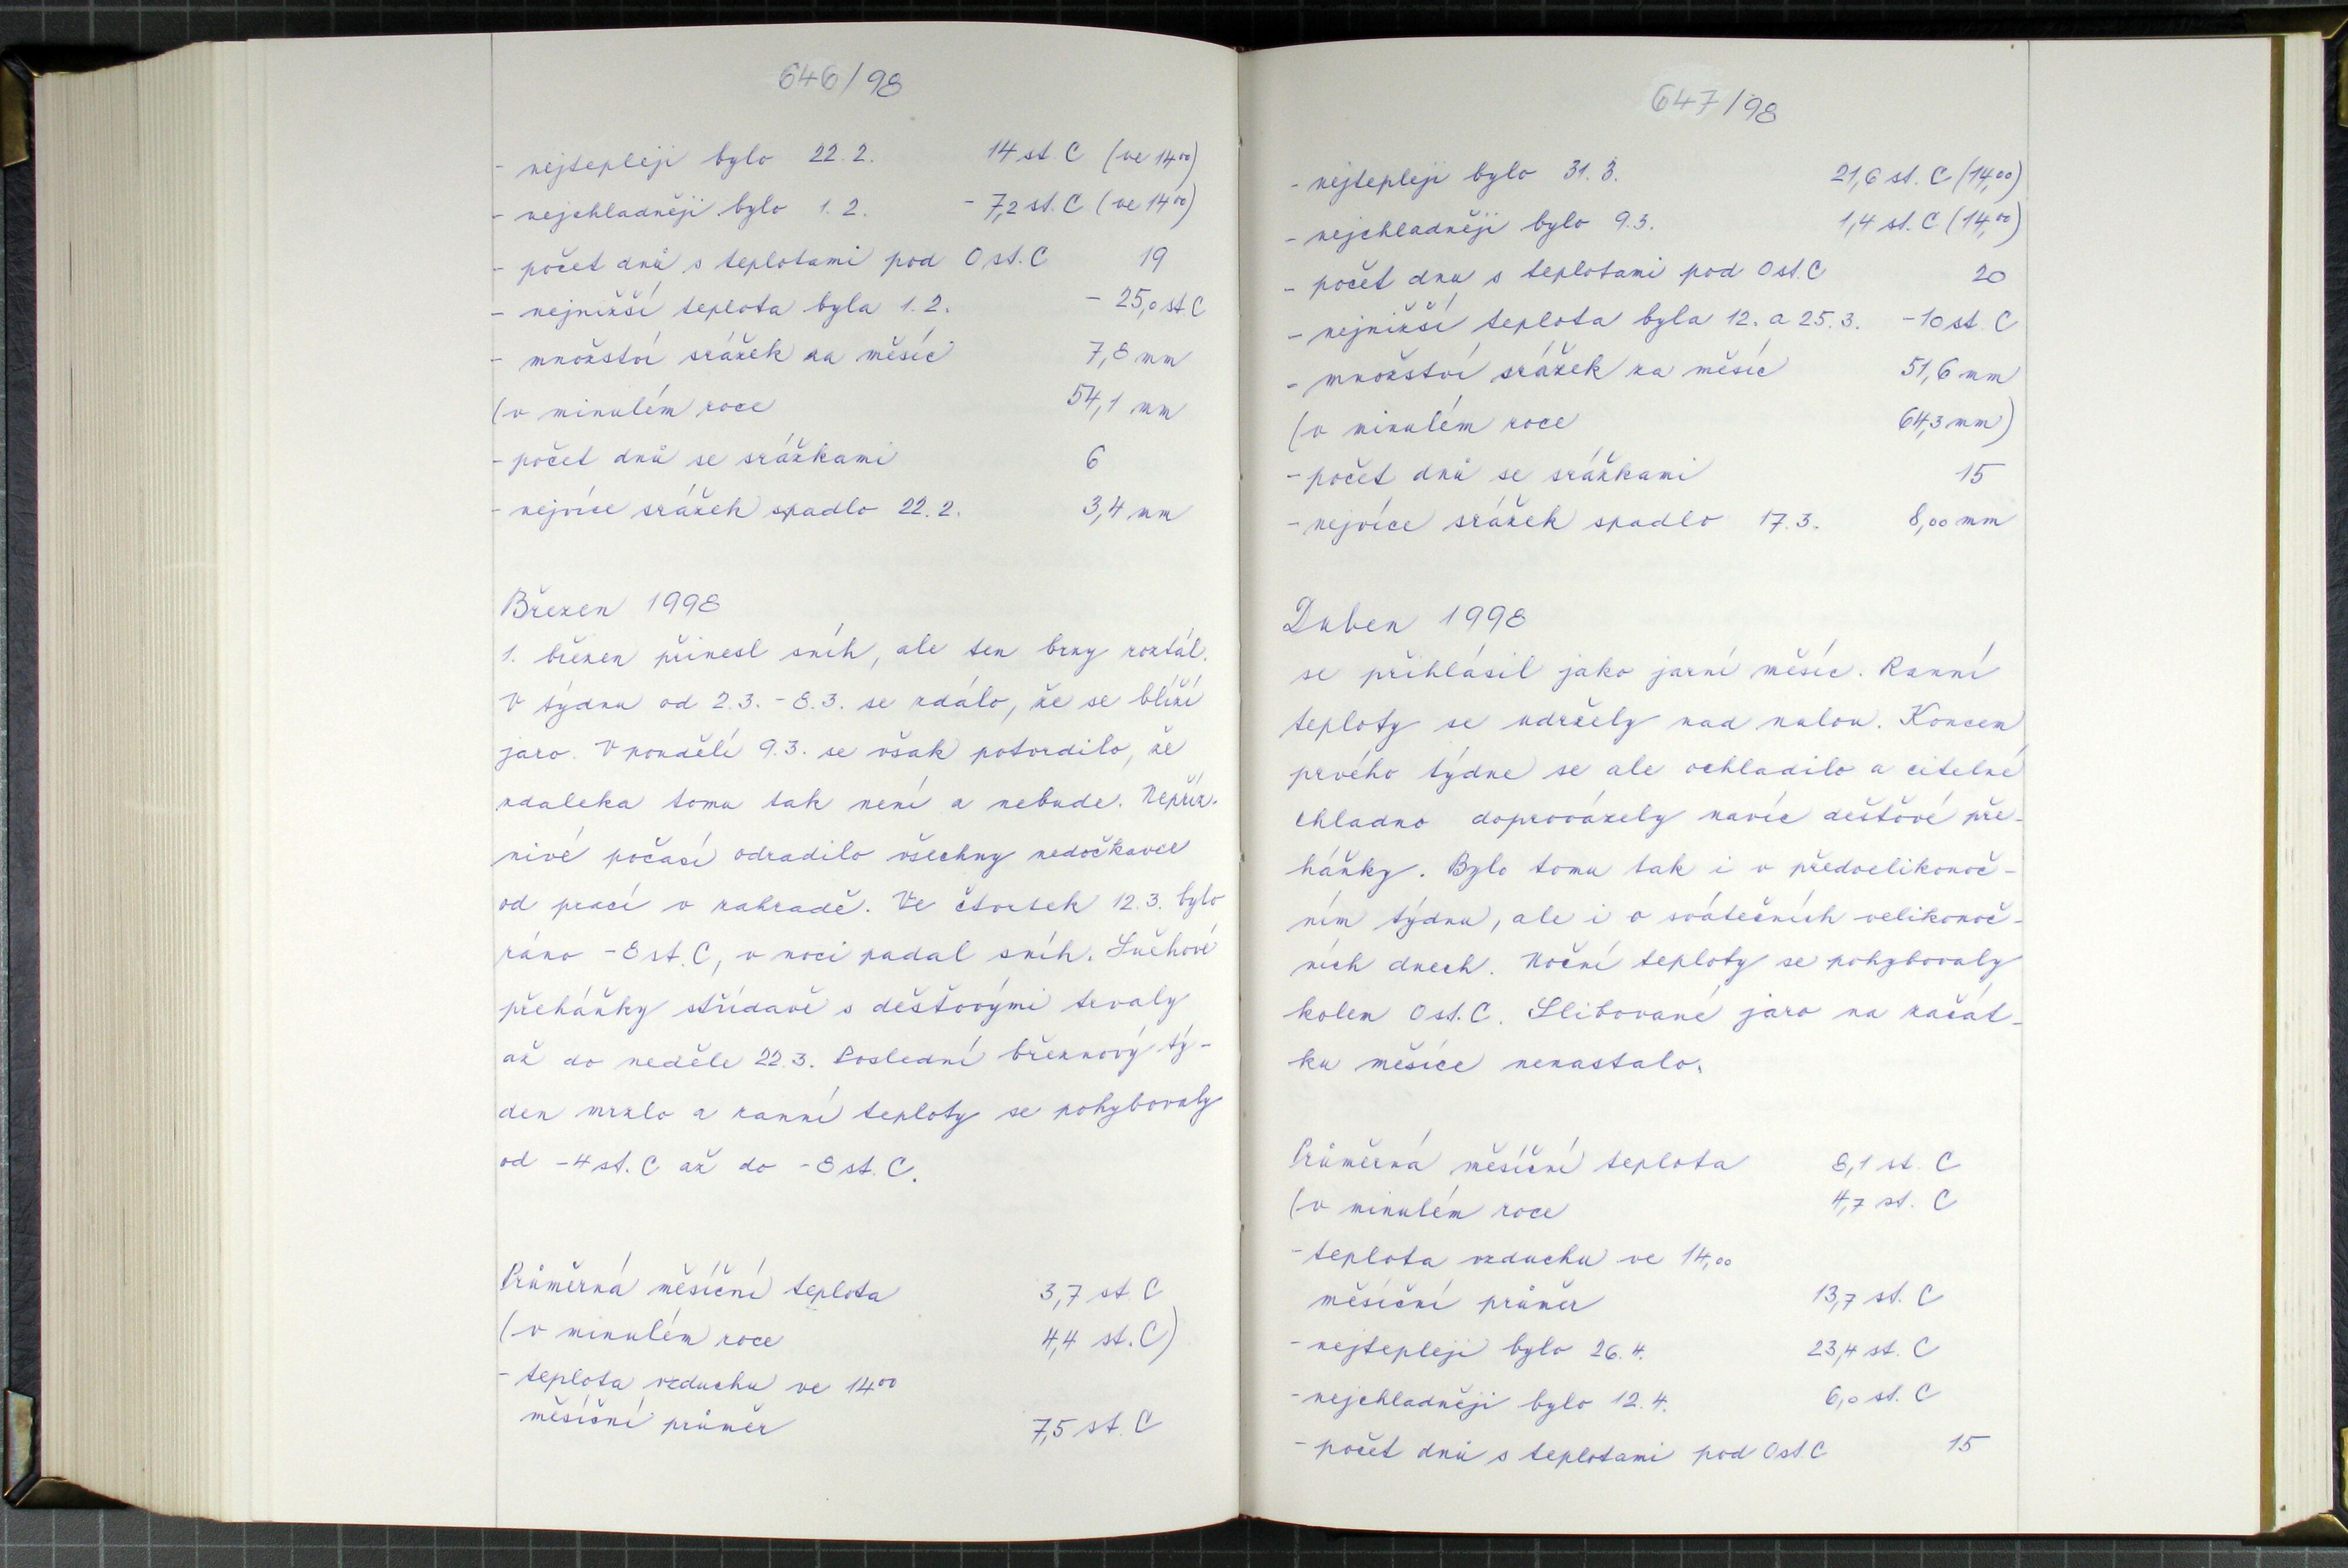 646/98
- nejtepleji bylo 22. 2. 14 st. C (ve 14⁰⁰)
- nejchladněji bylo 1. 2. - 7,2 st. C (ve 14⁰⁰)
- počet dnů s teplotami pod 0 st. C 19
- nejnižší teplota byla 1. 2. - 25,0 st C
- množství srážek za měsíc 7,8 mm
(v minulém roce 54,1 mm
- počet dnů se srážkami 6
- nejvíce srážek spadlo 22. 2. 3,4 mm
Březen 1998
1. březen přinesl sníh, ale ten brzy roztál.
V týdnu od 2.3. - 8.3. se zdálo, že se blíží
jaro. V pondělí 9.3. se však potvrdilo, že
zdaleka tomu tak není a nebude. Nepříz-
nivé počasí odradilo všechny nedočkavce
od prací v zahradě. Ve čtvrtek 12.3. bylo
ráno -8 st. C, v noci padal sníh. Sněhové
přeháňky střídavě s dešťovými trvaly
až do neděle 22.3. Poslední březnový tý-
den mrzlo a ranní teploty se pohybovaly
od -4 st. C až do -8 st. C.
Průměrná měsíční teplota 3,7 st. C
(v minulém roce 4,4 st. C)
- teplota vzduchu ve 14⁰⁰
měsíční průměr 7,5 st. C
647/98
- nejtepleji bylo 31. 3. 21,6 st. C (14,⁰⁰)
- nejchladněji bylo 9.3. 1,4 st. C (14,⁰⁰)
- počet dnu s teplotami pod 0 st. C 20
- nejnižší teplota byla 12. a 25.3. -10 st. C
- množství srážek za měsíc 51,6 mm
(v minulém roce 64,3 mm)
- počet dnů se srážkami 15
- nejvíce srážek spadlo 17.3. 8,00 mm
Duben 1998
se přihlásil jako jarní měsíc. Ranní
teploty se udržely nad nulou. Koncem
prvého týdne se ale ochladilo a citelné
chladno doprovázely navíc dešťové pře-
háňky. Bylo tomu tak i v předvelikonoč-
ním týdnu, ale i o svátečních velikonoč-
ních dnech. Noční teploty se pohybovaly
kolem 0 st. C. Slibované jaro na začát-
ku měsíce nenastalo.
Průměrná měsíční teplota 8,1 st. C
(v minulém roce 4,7 st. C
- teplota vzduchu ve 14,00
měsíční průměr 13,7 st. C
- nejtepleji bylo 26. 4. 23,4 st. C
- nejchladněji bylo 12. 4. 6,0 st. C
- počet dnů s teplotami pod 0 st C 15